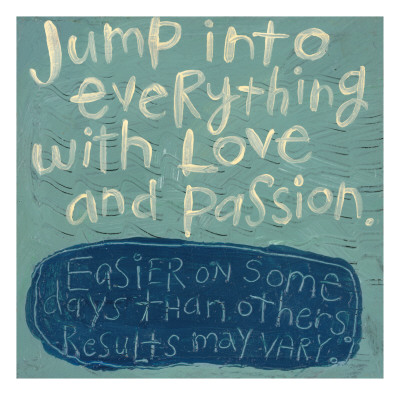 Jump into
eveRything
with Love
and passion.
EasiER on some
days than others.
Results may vary.